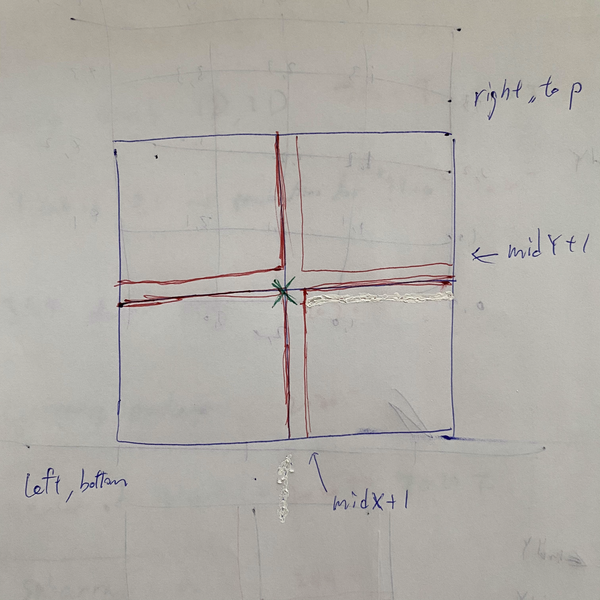 right, top
← midY+1
left, bottom
midX+1